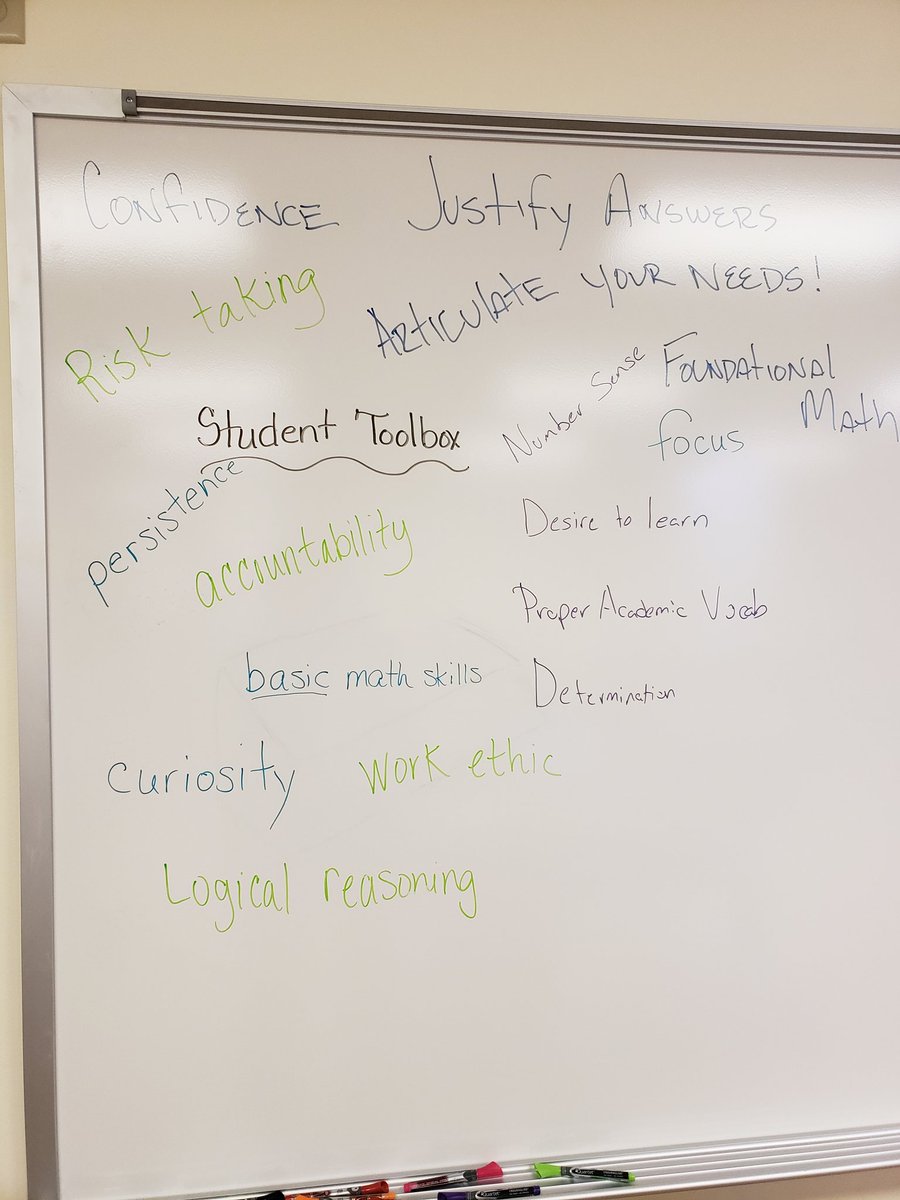 CONFIDENCE
JUSTIFY ANSWERS
Risk taking
ARTICULATE YOUR NEEDS!
Number Sense
FOUNDATIONAL
MATH
Student Toolbox
focus
persistence
Desire to learn
accountability
Proper Academic Vocab
basic math skills
Determination
curiosity
work ethic
Logical reasoning
Quartet